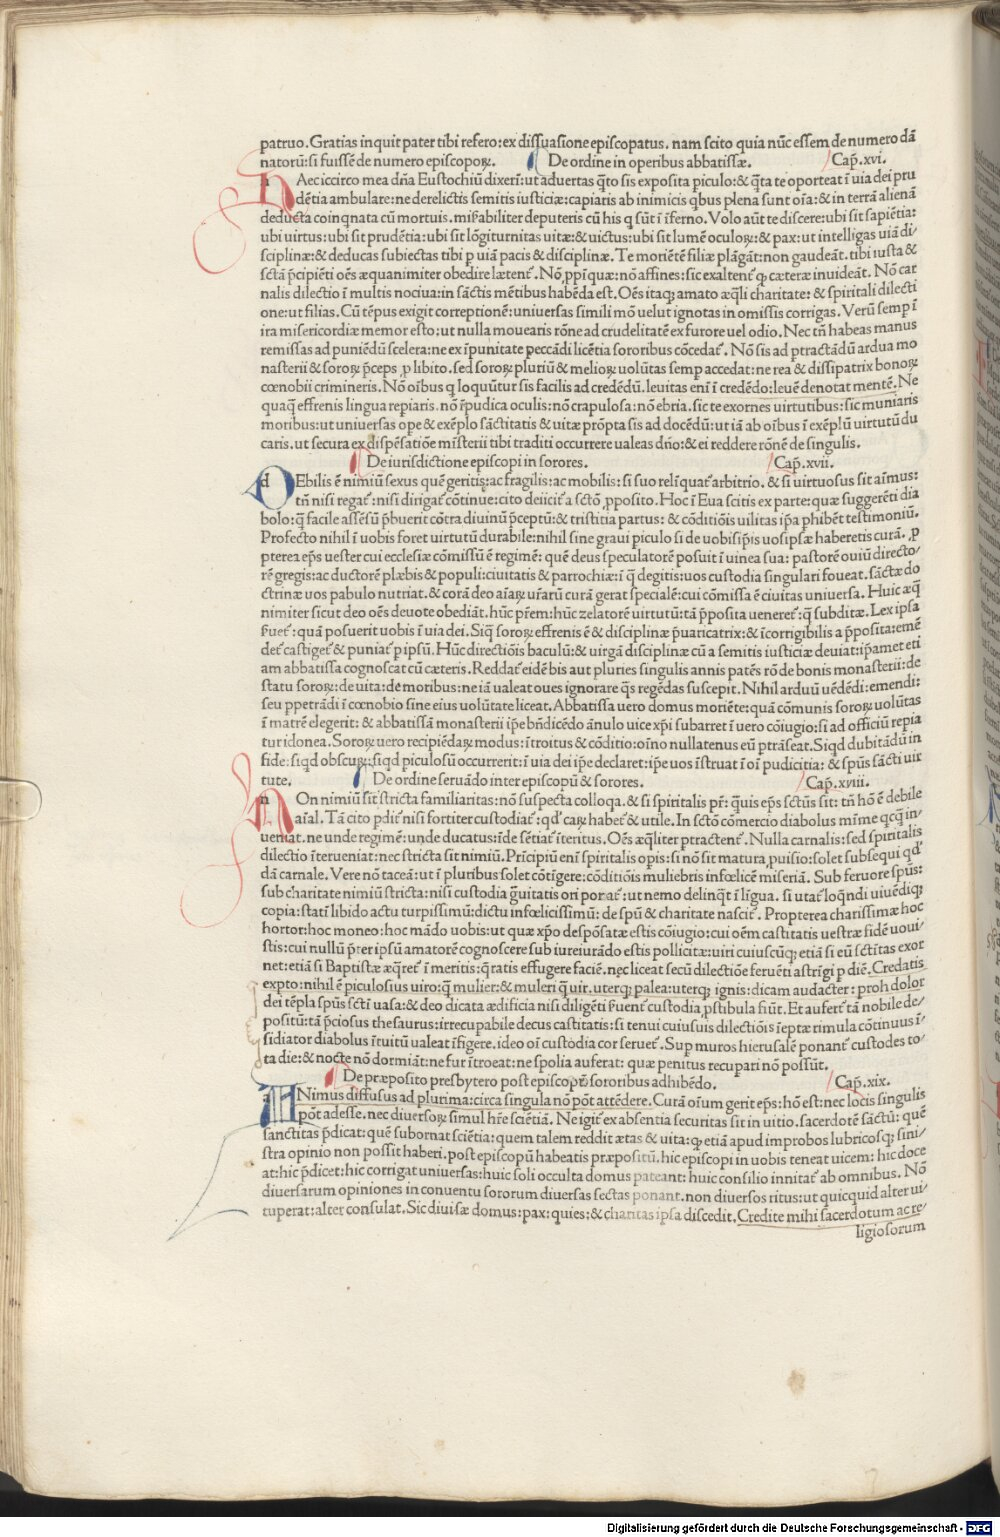 patruo. Gratias inquit pater tibi refero: ex dissuasione episcopatus. nam scito quia nūc essem de numero dā
natorū: si fuissē de numero episcopoꝝ. De ordine in operibus abbatissæ. Cap̄. xvi.
hAec iccirco mea dn̄a Eustochiū dixeri: ut aduertas q̄to sis exposita piculo: & q̄ta te oporteat ī uia dei pru
dētia ambulare: ne derelictis semitis iusticiæ: capiaris ab inimicis qbus plena sunt oīa: & in terrā alienā
deducta coinqnata cū mortuis. mirabiliter deputeris cū his q sūt ī īferno. Volo aūt te discere: ubi sit sapiētia:
ubi uirtus: ubi sit prudētia: ubi sit lōgiturnitas uitæ: & uictus: ubi sit lumē oculoꝝ: & pax: ut intelligas uiā di/
sciplinæ: & deducas subiectas tibi p uiā pacis & disciplinæ. Te moriētē filiæ plāgāt: non gaudeāt. tibi iusta &
sctā p̄cipiēti oēs æquanimiter obedire lætent̄. Nō, ppīquæ: nō affines: sic exaltent̄ q cæteræ inuideāt. Nō car
nalis dilectio ī multis nociua: in sāctis mētibus habēda est. Oēs itaq; amato æq̄li charitate: & spiritali dilecti
one: ut filias. Cū tēpus exigit correptionē: uniuersas simili mō uelut ignotas in omissis corrigas. Verū semp ī
ira misericordiæ memor esto: ut nulla mouearis rōne ad crudelitatē ex furore uel odio. Nec tn̄ habeas manus
remissas ad puniēdū scelera: ne ex īpunitate peccādi licētia sororibus cōcedat̄. Nō sis ad ptractādū ardua mo
nasterii & soroꝝ p̄ceps, p libito. sed soroꝝ pluriū & melioꝝ uolūtas semp accedat: ne rea & dissipatrix bonoꝝ
cœnobii crimineris. Nō oībus q loquūtur sis facilis ad credēdū. leuitas enī ī credēdo: leuē denotat mentē. Ne
quaq̄ effrenis lingua repiaris. nō īpudica oculis: nō crapulosa: nō ebria. sic te exornes uirtutibus: sic muniaris
moribus: ut uniuersas ope & exēplo sāctitatis & uitæ prōpta sis ad docēdū: ut iā ab oībus ī exēplū uirtutū du
caris. ut secura ex dispēsatiōe mīsterii tibi traditi occurrere ualeas dn̄o: & ei reddere rōnē de singulis.
De iurisdictione episcopi in sorores. Cap̄. xvii.
dEbilis ē nimiū sexus quē geritis: ac fragilis: ac mobilis: si suo relīquat̄ arbitrio. & si uirtuosus sit aīmus:
tn̄ nisi regat̄: nisi dirigat̄ cōtinue: cito deiicit̄ a sctō, pposito. Hoc ī Eua scitis ex parte: quæ suggerēti dia
bolo: q̄ facile assēsū p̄buerit cōtra diuinū p̄ceptū: & tristitia partus: & cōditiōis uilitas ip̄a phibēt testimoniū.
Profecto nihil ī uobis foret uirtutū durabile: nihil sine graui piculo si de uobisip̄is uosipsæ haberetis curā. p
pterea ep̄s uester cui ecclesiæ cōmissū ē regimē: quē deus speculatorē posuit ī uinea sua: pastorē ouiū directo/
rē gregis: ac ductorē plæbis & populi: ciuitatis & parrochiæ: ī q̄ degitis: uos custodia singulari foueat. sāctæ do
ctrinæ uos pabulo nutriat. & corā deo aīaꝝ ur̄aꝝ curā gerat specialē: cui cōmissa ē ciuitas uniuersa. Huic æq̄
nimiter sicut deo oēs deuote obediāt. hūc pr̄em: hūc zelatorē uirtutū: tā p̄posita ueneret̄: q̄ subditæ. Lex ipsa
seruet̄: quā posuerit uobis ī uia dei. Siq̄ soroꝝ effrenis ē & disciplinæ p̄uaricatrix: & īcorrigibilis a p̄posita: emē
det̄ castiget̄ & puniat̄ p ipsū. Hūc directiōis baculū: & uirgā disciplinæ cū a semitis iusticiæ deuiat: ip̄amet eti
am abbatissa cognoscat cū cæteris. Reddat̄ eidē bis aut pluries singulis annis patēs rō de bonis monasterii: de
statu soroꝝ: de uita: de moribus: ne iā ualeat oues ignorare q̄s regēdas suscepit. Nihil arduū uēdēdi: emendi:
seu ppetrādi ī cœnobio sine eius uolūtate liceat. Abbatissa uero domus moriēte: quā cōmunis soroꝝ uolūtas
ī matrē elegerit: & abbatissā monasterii ip̄e bn̄dicēdo ānulo uice xp̄i subarret ī uero cōiugio: si ad officiū repia
tur idonea. Soroꝝ uero recipiēdaꝝ modus: ītroitus & cōditio: oīno nullatenus eū ptrāseat. Siqd dubitādū in
fide: siqd obscuꝝ: siqd piculosū occurrerit: ī uia dei ip̄e declaret: ip̄e uos īstruat ī oī pudicitia: & sp̄us sācti uir
tute. De ordine seruādo inter episcopū & sorores. Cap̄. xviii.
nOn nimiū sit stricta familiaritas: nō suspecta colloqa. & si spiritalis pr̄: q̄uis ep̄s sctūs sit: tn̄ hō ē debile
aīal. Tā cito pdit̄ nisi fortiter custodiat̄: qd̄ caꝝ habet̄ & utile. In sctō cōmercio diabolus mīme qcq̄ in/
ueniat. ne unde regimē: unde ducatus: īde sētiat̄ īteritus. Oēs æq̄liter ptractent̄. Nulla carnalis: sed spiritalis
dilectio īterueniat: nec stricta sit nimiū. Prīcipiū enī spiritalis opis: si nō sit matura, puisio: solet subsequi qd̄
dā carnale. Vere nō taceā: ut ī pluribus solet cōtīgere: cōditiōis muliebris infœlicē miseriā. Sub feruore sp̄us:
sub charitate nimiū stricta: nisi custodia g̃uitatis ori ponat̄: ut nemo delinq̄t ī līgua. si utat̄ loq̄ndi uiuēdiq;
copia: statī libido actu turpissimū: dictu infœlicissimū: de sp̄u & charitate nascit̄. Propterea charissimæ hoc
hortor: hoc moneo: hoc mādo uobis: ut quæ xp̄o despōsatæ estis cōiugio: cui oēm castitatis uestræ fidē uoui/
stis: cui nullū p̄ter ipsū amatorē cognoscere sub iureiurādo estis pollicitæ: uiri cuiuscūq; etiā si eū sctītas exor
net: etiā si Baptistæ æq̄ret̄ ī meritis: q̄ratis effugere faciē. nec liceat secū dilectiōe feruēti astrīgi p diē. Credatis
expto: nihil ē piculosius uiro: q̄ mulier: & muleri q̄ uir. uterq; palea: uterq; ignis: dicam audacter: proh dolor
dei tēpla sp̄us scti uasa: & deo dicata ædificia nisi diligēti seruent̄ custodia, pstibula fiūt. Et aufert̄ tā nobile de/
positū: tā p̄ciosus thesaurus: irrecupabile decus castitatis: si tenui cuiusuis dilectiōis īeptæ rimula cōtinuus ī/
sidiator diabolus ītuitū ualeat īfigere. ideo oī custodia cor seruet̄. Sup muros hierusalē ponant̄ custodes to/
ta die: & nocte nō dormiāt: ne fur ītroeat: ne spolia auferat: quæ penitus recupari nō possūt.
De præposito presbytero post episcopū sororibus adhibēdo. Cap̄. xix.
aNimus diffusus ad plurima: circa singula nō pōt attēdere. Curā oīum gerit ep̄s: hō est: nec locis singulis
pōt adesse. nec diuersoꝝ simul hr̄e sciētiā. Ne igit̄ ex absentia securitas sit in uitio. sacerdotē sāctū: quē
sanctitas p̄dicat: quē subornat sciētia: quem talem reddit ætas & uita: q etiā apud improbos lubricosq; sini/
stra opinio non possit haberi. post episcopū habeatis præpositū. hic episcopi in uobis teneat uicem: hic doce
at: hic p̄dicet: hic corrigat uniuersas: huic soli occulta domus pateant: huic consilio innitat̄ ab omnibus. Nō
diuersarum opiniones in conuentu sororum diuersas sectas ponant. non diuersos ritus: ut quicquid alter ui/
tuperat: alter consulat. Sic diuisæ domus: pax: quies: & charitas ipsa discedit. Credite mihi sacerdotum ac re/
ligiosorum
Digitalisierung gefördert durch die Deutsche Forschungsgemeinschaft - DFG